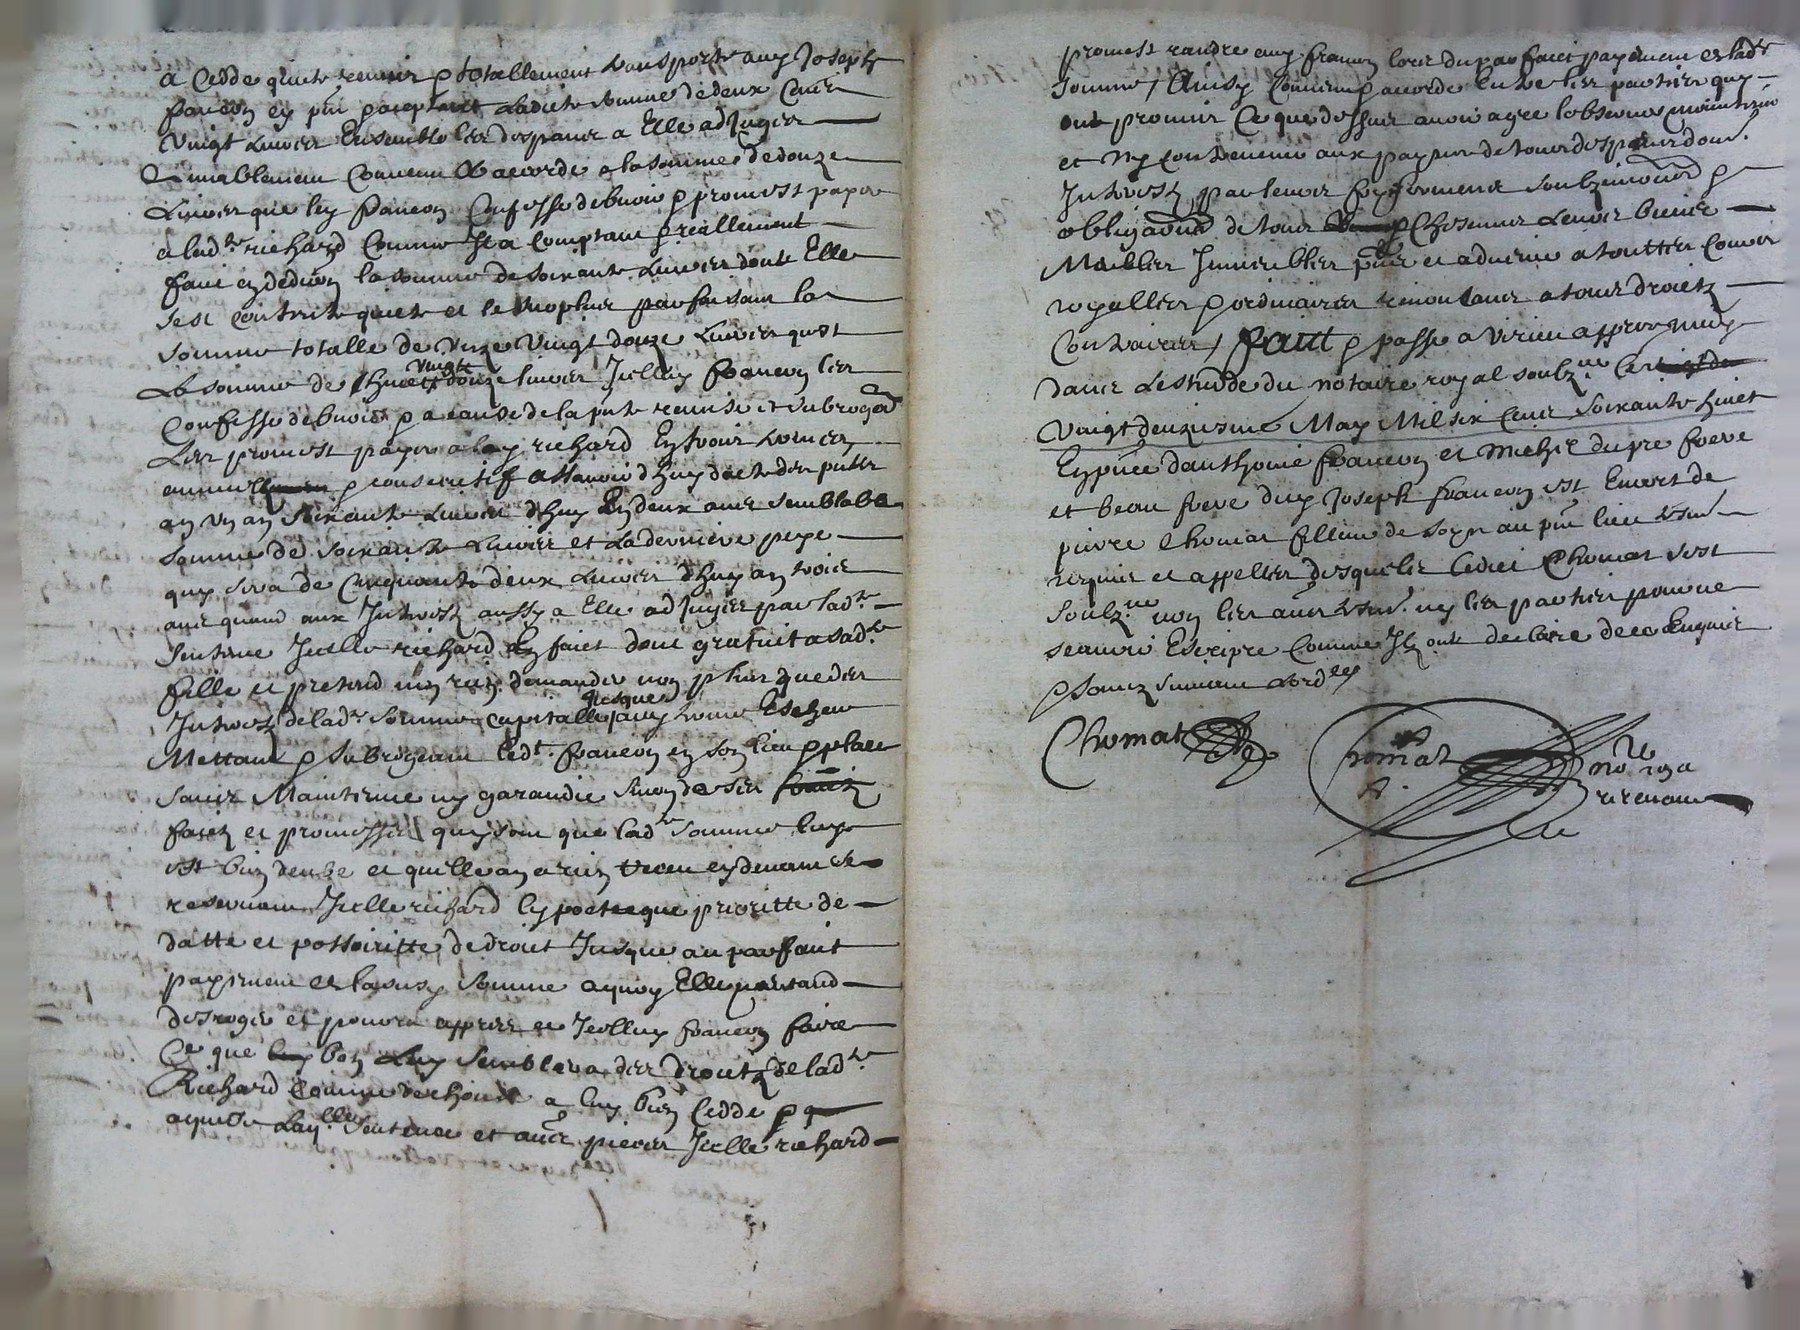 a cedde quitte remis & totallement transporte aux Joseph
francon cy pnt & aceptant ladicte somme de deux cents
vingt livres Ensemble les despans a Elle adjugés
amiablement convenu & accorde a la somme de douze
Livres que ley francon Confesse debvoir & promest payer
a lad.te richard comme Il a comptant & reallement
faict en deduon la somme de soixante livres dont Elle
sest contente quitte et le surplus parfaisant la
somme totalle de unze vingt douze livres quest
La somme de huict vingt douze livres Icelluy francon les
Confesse debvoir & a cause de la pnte remise et subrogaon
Les promest payer a lay richard En trois termes
annuels & consecutif assavoir d'huy date des pntes
en un an soixante livres d'huy En deux ans semblable
somme de soixante livres et la derniere paye
quy sera de cinquante deux livres d'huy en trois
ans quand aux Intrestz aussy a Elle adjugies par lad.te
sentence Icelle richard En faict don gratuit a sad.te
fille et pretend non rien demander non plus que des
Intrestz de lad.te somme capitalle jusques aux terme Escheu
Mettant & subrogeant led.t francon en son lieu & place
sans Maintenue ny garandie sinon de ses
faictz et promesses quy sont que lad.te somme luy
est bien deube et quelle en a rien receu cy devant se
reservant Icelle richard lypoteque prioritte de
datte et possoiritte de droict Jusque au parfaict
payement de lasusd somme a quoy Elle nentand
desroger et pourra appres ce Icelluy francon faire
Ce que bon Luy semblera des droictz de lad.te
Richard comme de chose a luy bien cedde & q
aquise Layelle sentence et aues pieces Icelle richard
promest randre aux francon lors du parfaict payement de lad.te
somme / Ainsy convenu & accorde Entre les parties quy
ont promis Ce que dessus avoir agre lobserver
et ny contrevenir aux paynes de tous despans dom.
Intrestz par leurs foy & serment soubzmissions &
obligaons de tous & Chescuns Leurs biens
Meubles Immeubles pnts et advenir a touttes Cours
royalles & ordinaires renonceant a tous droictz
Contraires / faict & passe a virieu appres midy
dans lestude du notaire royal soubz.ne
vingt deuxiesme May Mil six cent soixante huict
En pnce danthoine francon et michel dupre frere
et beau frere duy Joseph francon est Encores de
pierre Chomat fillieu de soyn au pnt lieu tesm.
requis et appelles desquelz Cedict Chomat sest
soubz.ne non les aues tesm. ny les parties pour ne
scavoir Escripre Comme Ilz ont declaire de ce Enquis
& sommes suivant Lord.ce
Chomat
Chomat
no.re roya
recevant